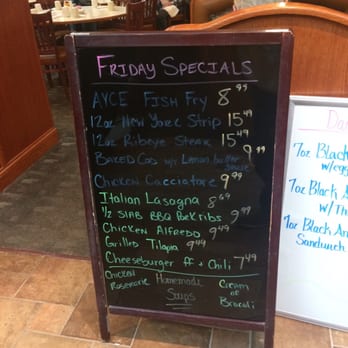 FRIDAY SPECIALS
AYCE FISH FRY 8.99
12oz NEW YORK STRIP 15.49
12oz RIBEYE STEAK 15.49
BAKED COD w/ LEMON BUTTER 9.99
CHICKEN CACCIATORE 9.99
ITALIAN LASAGNA 8.69
1/2 SLAB BBQ PORK RIBS 9.99
CHICKEN ALFREDO 9.49
Grilled Tilapia 9.49
Cheeseburger FF + Chili 7.49
Chicken Rosemarie
Homemade Soups
Cream of Brocoli
7oz Black
w/egg
7oz Black A
w/Th
7oz Black An
Sandwich